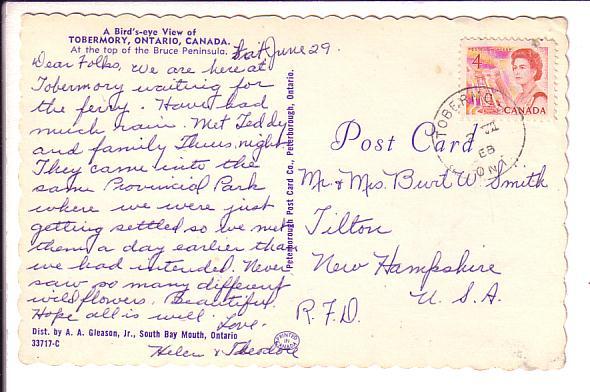 A Bird's-eye View of
TOBERMORY, ONTARIO, CANADA.
At the top of the Bruce Peninsula.
Sat June 29.
Dear Folks, We are here at
Tobermory waiting for
the ferry. Have had
much rain. Met Teddy
and family Thurs. night.
They came into the
same Provincial Park
where we were just
getting settled so we met
them a day earlier than
we had intended. Never
saw so many different
wildflowers. Beautiful.
Hope all is well.
Love.
Helen & Theodore
Dist. by A. A. Gleason, Jr., South Bay Mouth, Ontario
33717-C
Peterborough Post Card Co., Peterborough, Ontario.
PRINTED
IN
CANADA
Post Card
4
CANADA
TOBERMORY
ONT
Mr. & Mrs. Burt W. Smith
Tilton
New Hampshire
R.F.D. U.S.A.